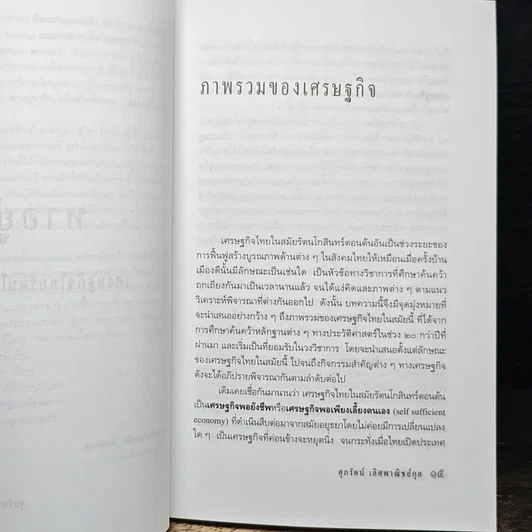 ภาพรวมของเศรษฐกิจ
เศรษฐกิจไทยในสมัยรัตนโกสินทร์ตอนต้นอันเป็นช่วงระยะของ
การฟื้นฟูสร้างบูรณภาพด้านต่าง ๆ ในสังคมไทยให้เหมือนเมื่อครั้งบ้าน
เมืองดีนั้นมีลักษณะเป็นเช่นใด เป็นหัวข้อทางวิชาการที่ศึกษาค้นคว้า
ถกเถียงกันมาเป็นเวลานานแล้ว จนได้แง่คิดและภาพต่าง ๆ ตามแนว
วิเคราะห์พิจารณาที่ต่างกันออกไป ดังนั้น บทความนี้จึงมีจุดมุ่งหมายที่
จะนำเสนออย่างกว้าง ๆ ถึงภาพรวมของเศรษฐกิจไทยในสมัยนี้ ที่ได้จาก
การศึกษาค้นคว้าหลักฐานต่าง ๆ ทางประวัติศาสตร์ในช่วง ๒๐ กว่าปีที่
ผ่านมา และเริ่มเป็นที่ยอมรับในวงวิชาการ โดยจะนำเสนอตั้งแต่ลักษณะ
ของเศรษฐกิจไทยในสมัยนี้ ไปจนถึงกิจกรรมสำคัญต่าง ๆ ทางเศรษฐกิจ
ดังจะได้อภิปรายพิจารณากันตามลำดับต่อไป
เดิมเคยเชื่อกันมานานว่า เศรษฐกิจไทยในสมัยรัตนโกสินทร์ตอนต้น
เป็นเศรษฐกิจพอยังชีพหรือเศรษฐกิจพอเพียงเลี้ยงตนเอง (self sufficient
economy) ที่ดำเนินสืบต่อมาจากสมัยอยุธยาโดยไม่ค่อยมีการเปลี่ยนแปลง
ใด ๆ เป็นเศรษฐกิจที่ค่อนข้างจะหยุดนิ่ง จนกระทั่งเมื่อไทยเปิดประเทศ
ศุภรัตน์ เลิศพาณิชย์กุล ๑๕